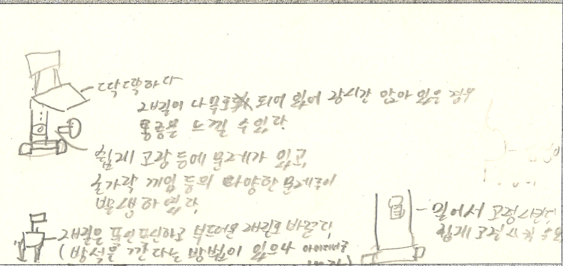 딱딱하다
재질이 나무로 되어 있어 장시간 앉아 있을 경우
통증을 느낄 수 있다.
쉽게 고장 등에 문제가 있고,
손가락 끼임 등의 다양한 문제점이
발생하였다.
재질은 푹신푹신하고 부드러운 재질로 바꾼다.
(방석을 깐다는 방법이 있으나
밀어서 고정시킨다
쉽게 고정시킬 수